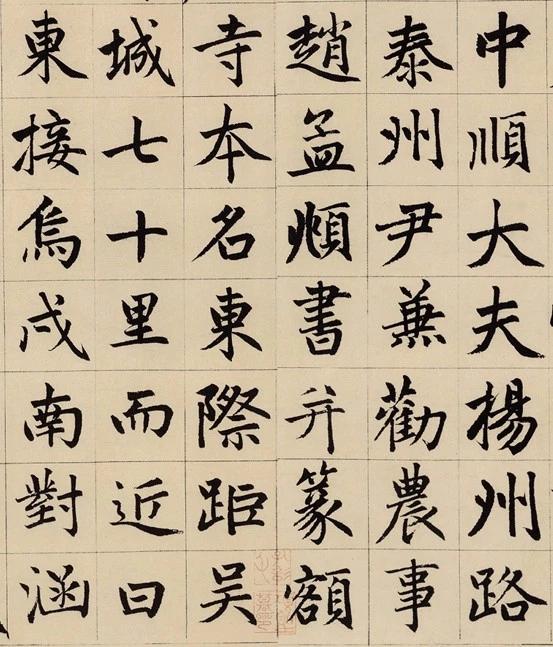 中順大夫楊州路
泰州尹兼勸農事
趙孟頫書并篆額
寺本名東際距吴
城七十里而近曰
東接烏戍南對涵